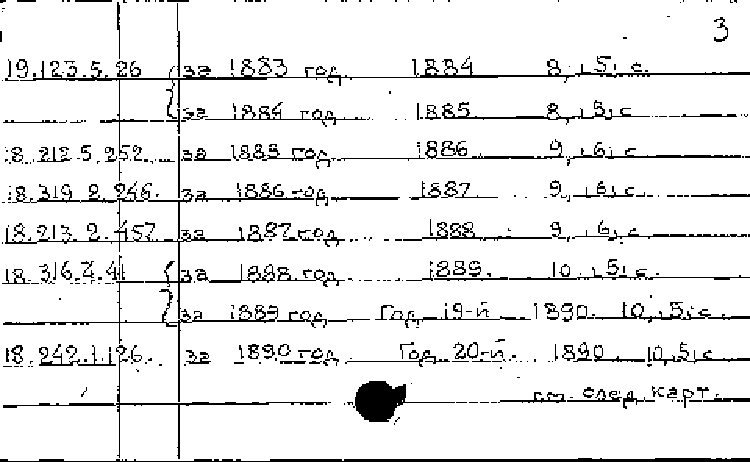 3
19.123.5.26 за 1883 год. 1884 8, 151 с.
за 1884 год 1885 8, 151 с
18.212.5.252. за 1885 год. 1886 9, 161 с
18.319.2.246. за 1886 год 1887 9, 161 с.
18.213.2.457 за 1887 год 1888 9, 161 с.
18.316.7.41 за 1888 год. 1889. 10, 151 с.
за 1889 год Год 19-й 1890. 10, 151 с.
18.242.1.126. за 1890 год Год 20-й. 1890 10, 51 с
см. след. карт.